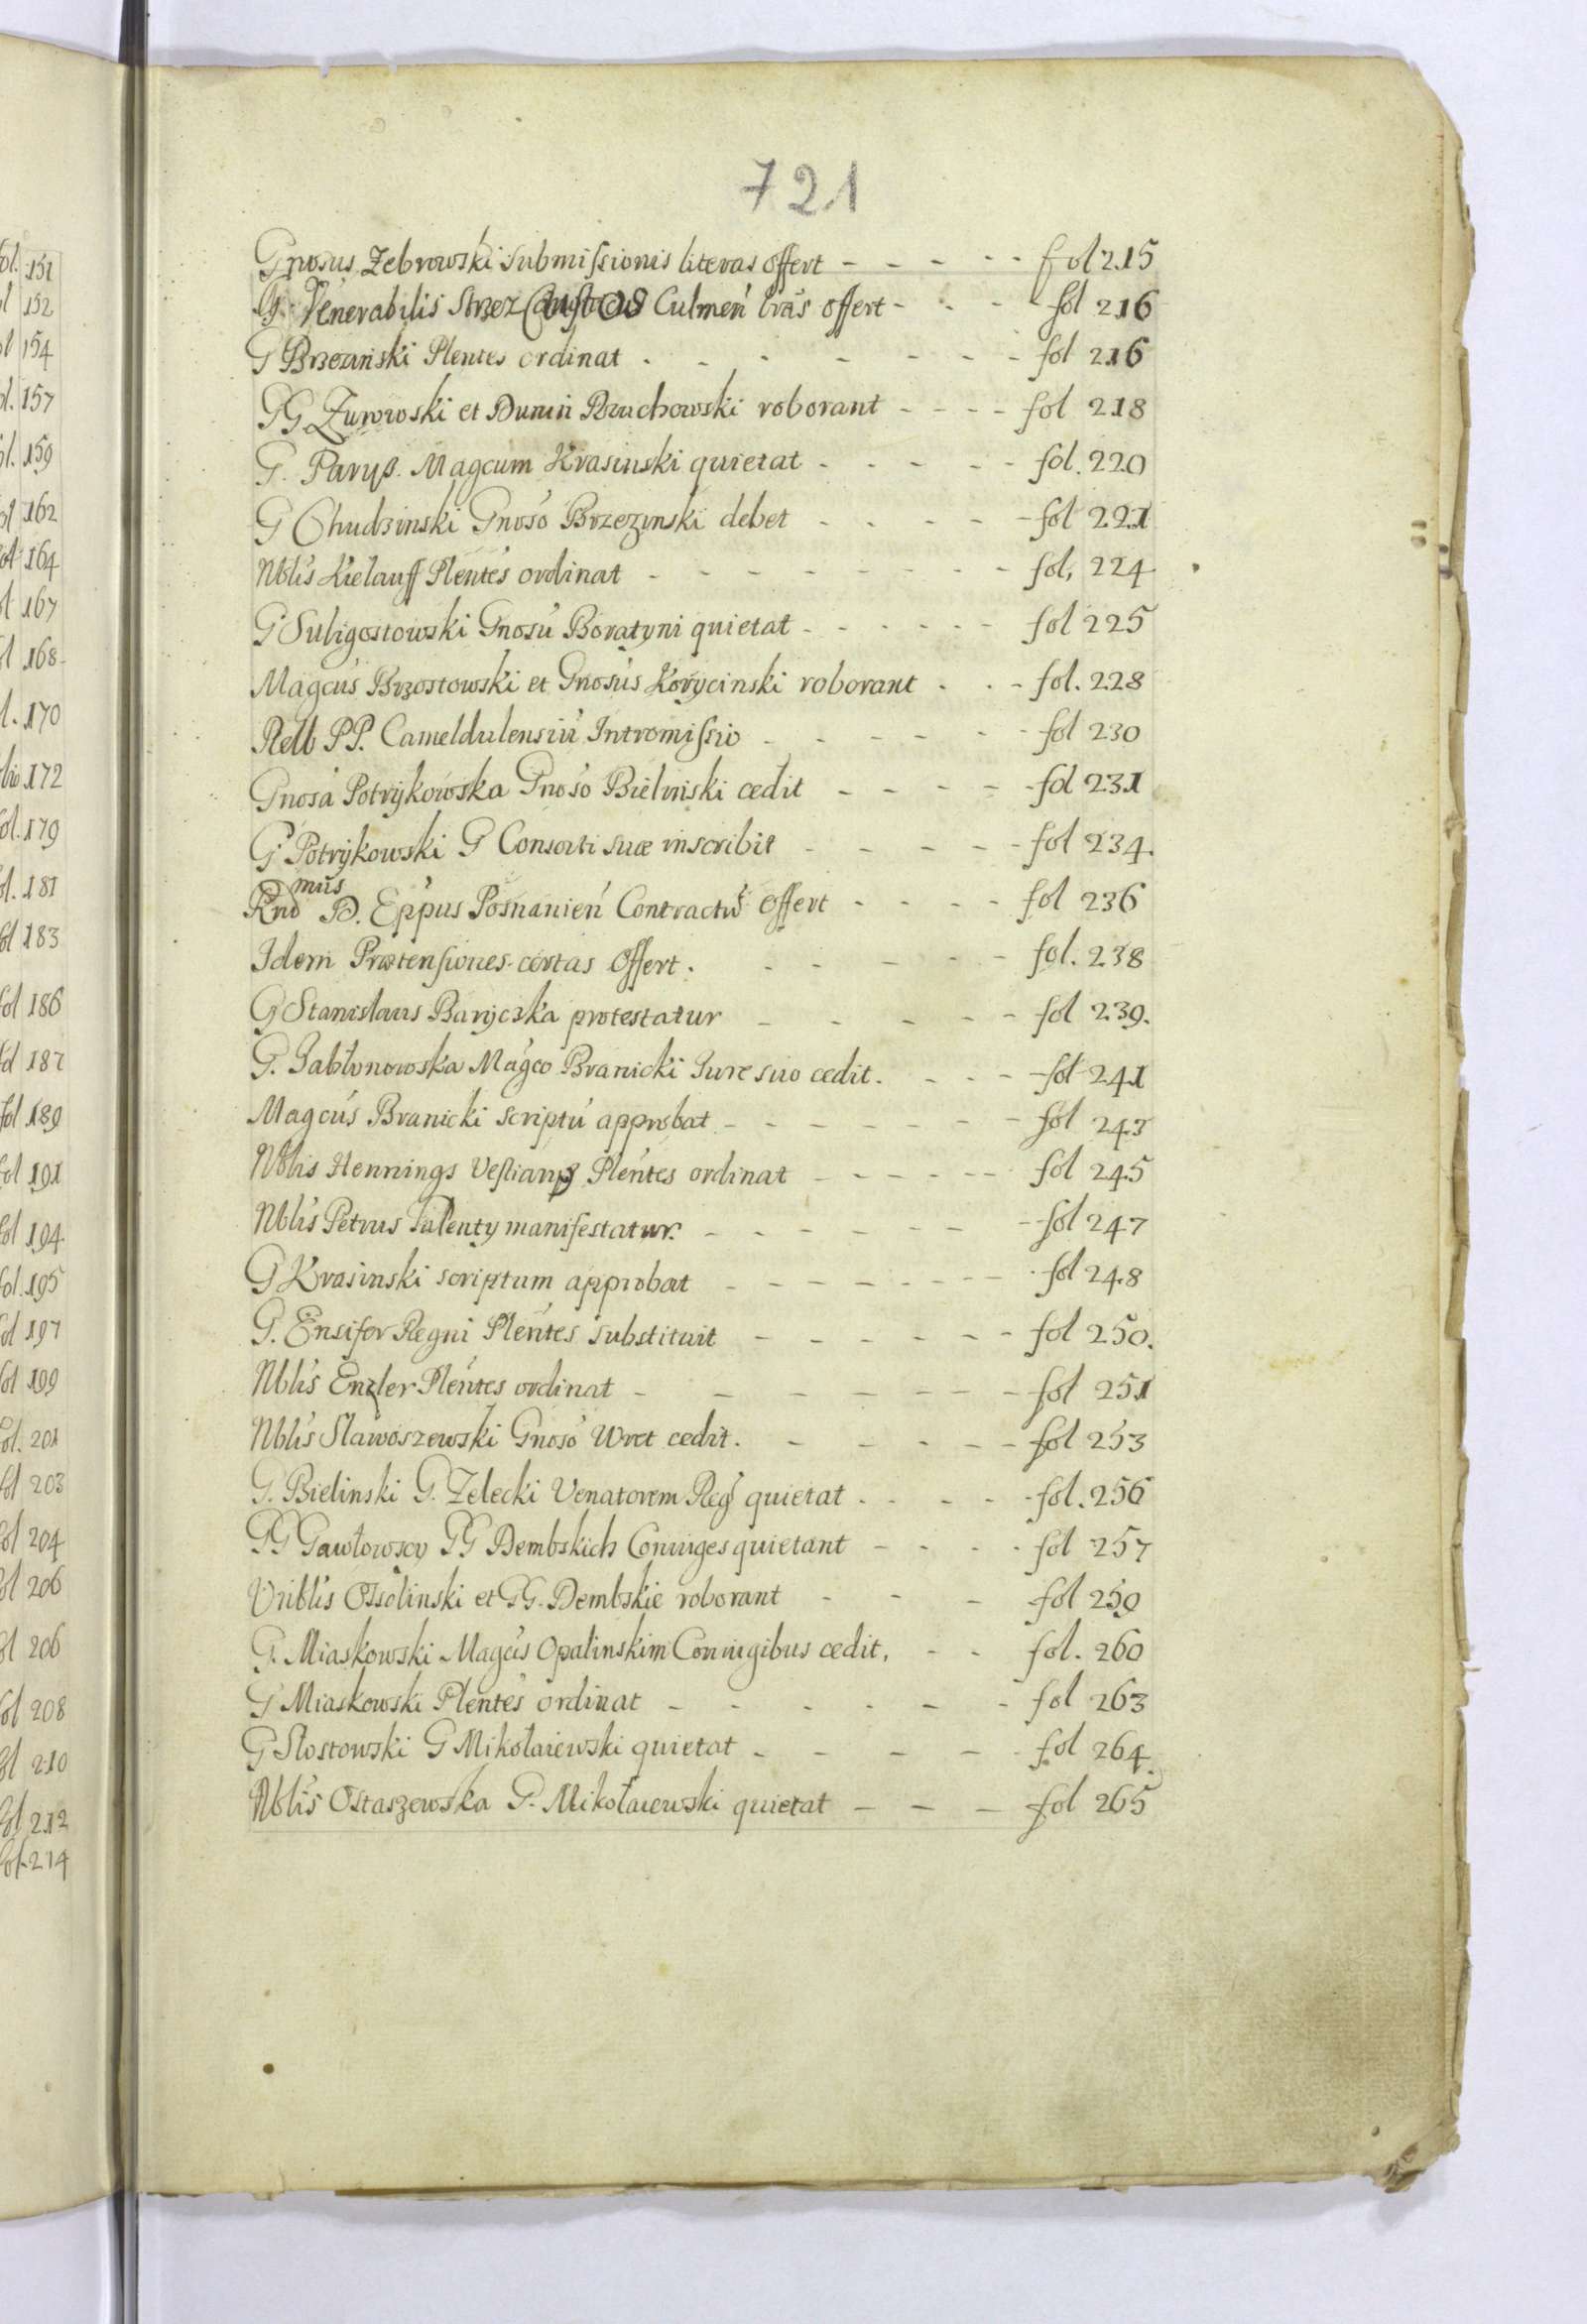 721
Gnosus Zebrowski Submissionis literas offert - - - - - fol 215
G. Venerabilis Strzez Custos Culmeń lrās offert - - - fol 216
G Brzezinski Plentes ordinat - - - - - - - fol 216
GG Zurowski et Dunin Rzuchowski roborant - - - - fol 218
G. Parys. Magcum Krasinski quietat - - - - - fol. 220
G Chudzinski Gnoso Brzezinski debet - - - - - fol 221
Nblis Kielauff Plentes ordinat - - - - - - - - fol, 224
G Suligostowski Gnosu Boratyni quietat - - - - - - fol 225
Magcus Brzostowski et Gnosus Korycinski roborant - - - fol. 228
Rell PP. Cameldulensiu Intromissio - - - - - - fol 230
Gnosa Potrykowska Gnoso Bielinski cedit - - - - - fol 231
G. Potrykowski G Consorti suæ inscribit - - - - - fol 234.
Rndmus D. Eppus Posnanień Contractu offert - - - - fol 236
Idem Prætensiones certas offert. - - - - - fol. 238
G Stanislaus Baryczka protestatur - - - - - fol 239.
G. Jabłonowska Magco Branicki Iure suo cedit. - - - fol 241
Magcus Branicki scriptu approbat - - - - - - - fol 243
Nblis Hennings Plentes ordinat - - - - - fol 245
Nblis Petrus Talenty manifestatur. - - - - - - fol 247
G Krasinski scriptum approbat - - - - - - - - fol 248
G. Ensifer Regni Plentes substituit - - - - - - fol 250.
Nblis Enzler Plentes ordinat - - - - - - - fol 251
Nblis Slawoszewski Gnoso Wret cedit. - - - - - fol 253
G. Bielinski G. Zelecki Venatorem Reg quietat - - - - - fol. 256
GG Gawłowscy GG Dembskich Coniuges quietant - - - - fol 257
Vriblis Ossolinski et GG. Dembskie roborant - - - fol 259
G. Miaskowski Magcis Opalinskim Coniugibus cedit, - - fol. 260
G Miaskowski Plentes ordinat - - - - - - fol 263
G Slostowski G Mikołaiewski quietat - - - - - fol 264.
Nblis Ostaszewska G. Mikołaiewski quietat - - - fol 265